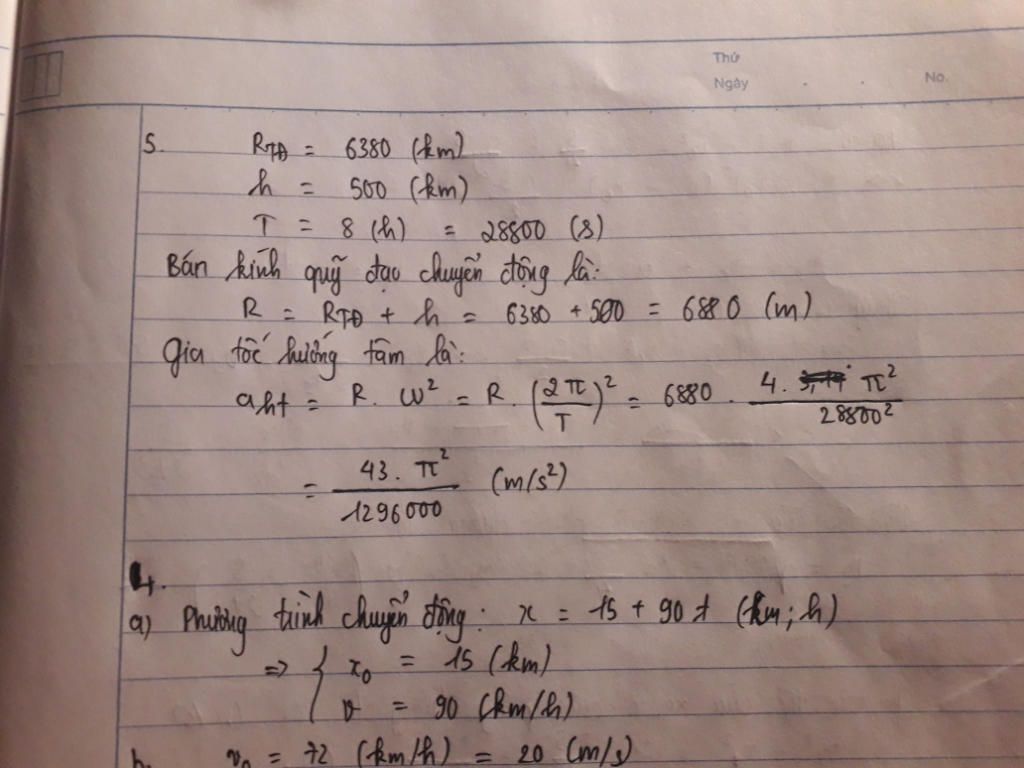 Thứ
Ngày . . No.
5. R_TĐ = 6380 (km)
h = 500 (km)
T = 8 (h) = 28800 (s)
Bán kính quỹ đạo chuyển động là:
R = R_TĐ + h = 6380 + 500 = 6880 (m)
Gia tốc hướng tâm là:
a_ht = R. ω² = R. (2π/T)² = 6880 . 4. π²/28800²
= 43. π²/1296000 (m/s²)
4.
a) Phương trình chuyển động: x = 15 + 90t (km; h)
=> { x₀ = 15 (km)
v = 90 (km/h)
b. v₀ = 72 (km/h) = 20 (m/s)